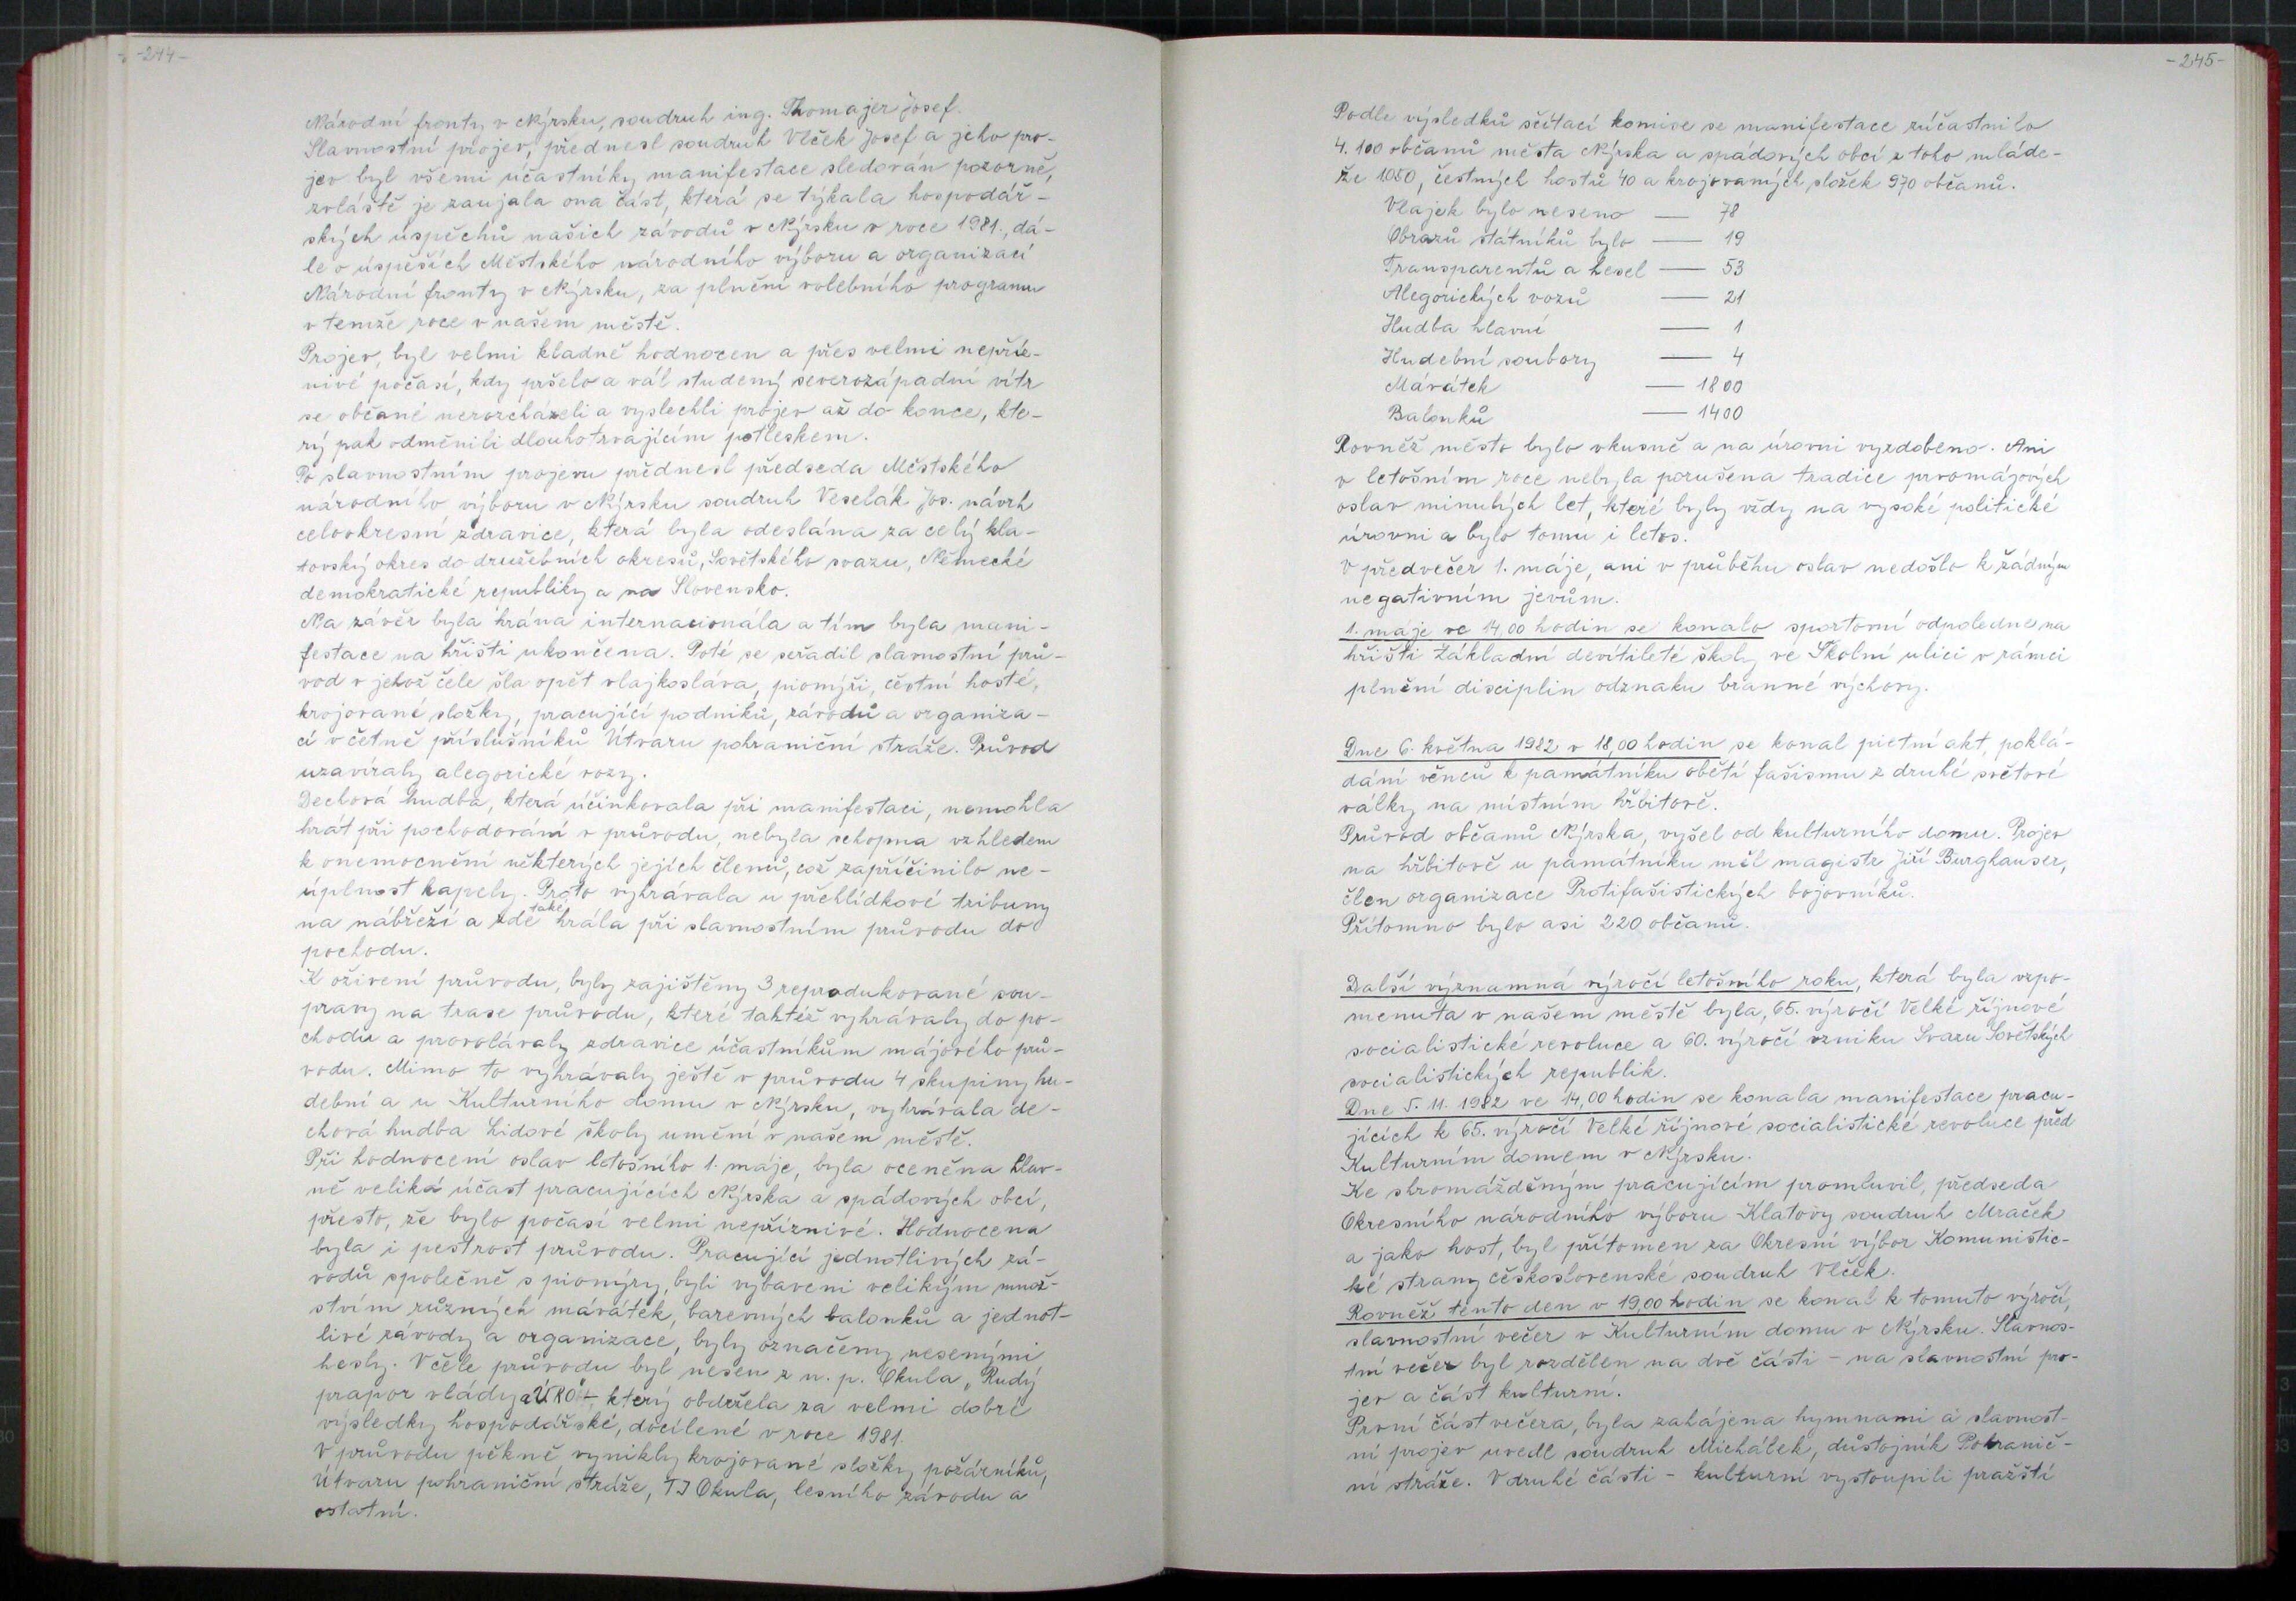 -244-
Národní fronty v Nýrsku, soudruh ing. Thomajer Josef.
Slavnostní projev, přednesl soudruh Vlček Josef a jeho pro-
jev byl všemi účastníky manifestace sledován pozorně,
zvláště je zaujala ona část, která se týkala hospodář-
ských úspěchů našich závodů v Nýrsku v roce 1981., dá-
le o úspěších Městského národního výboru a organizací
Národní fronty v Nýrsku, za plnění volebního programu
v temže roce v našem městě.
Projev, byl velmi kladně hodnocen a přes velmi nepříz-
nivé počasí, kdy pršelo a vál studený severozápadní vítr
se občané nerozcházeli a vyslechli projev až do konce, kte-
rý pak odměnili dlouhotrvajícím potleskem.
Po slavnostním projevu přednesl předseda Městského
národního výboru v Nýrsku soudruh Veselák Jos. návrh
celookresní zdravice, která byla odeslána za celý kla-
tovský okres do družebních okresů, Sovětského svazu, Německé
demokratické republiky a na Slovensko.
Na závěr byla hrána internacionála a tím byla mani-
festace na hřišti ukončena. Poté se seřadil slavnostní prů-
vod v jehož čele šla opět vlajkosláva, pionýři, čestní hosté,
krojované složky, pracující podniků, závodů a organiza-
cí včetně příslušníků Útvaru pohraniční stráže. Průvod
uzavíraly alegorické vozy.
Dechová hudba, která účinkovala při manifestaci, nemohla
hrát při pochodování v průvodu, nebyla schopna vzhledem
k onemocnění některých jejích členů, což zapříčinilo ne-
úplnost kapely. Proto vyhrávala u přehlídkové tribuny
na nábřeží a zde také hrála při slavnostním průvodu do
pochodu.
K oživení průvodu, byly zajištěny 3 reprodukované sou-
pravy na trase průvodu, které taktéž vyhrávaly do po-
chodu a provolávaly zdravice účastníkům májového prů-
vodu. Mimo to vyhrávaly ještě v průvodu 4 skupiny hu-
dební a u Kulturního domu v Nýrsku, vyhrávala de-
chová hudba Lidové školy umění v našem městě.
Při hodnocení oslav letošního 1. máje, byla oceněna hlav-
ně veliká účast pracujících Nýrska a spádových obcí,
přesto, že bylo počasí velmi nepříznivé. Hodnocena
byla i pestrost průvodu. Pracující jednotlivých zá-
vodů společně s pionýry, byli vybaveni velikým množ-
stvím různých mávátek, barevných balonků a jednot-
livé závody a organizace, byly označeny nesenými
hesly. V čele průvodu byl nesen z n. p. Okula, Rudý
prapor vlády a ÚRO, který obdržela za velmi dobré
výsledky hospodářské, docílené v roce 1981.
V průvodu pěkně vynikly krojované složky požárníků,
Útvaru pohraniční stráže, TJ Okula, lesního závodu a
ostatní.
-245-
Podle výsledků sčítací komise se manifestace zúčastnilo
4.100 občanů města Nýrska a spádových obcí z toho mláde-
že 1080, čestných hostů 40 a krojovaných složek 970 občanů.
Vlajek bylo neseno — 78
Obrazů státníků bylo — 19
Transparentů a hesel — 53
Alegorických vozů — 21
Hudba hlavní — 1
Hudební soubory — 4
Mávátek — 1800
Balonků — 1400
Rovněž město bylo vkusně a na úrovni vyzdobeno. Ani
v letošním roce nebyla porušena tradice prvomájových
oslav minulých let, které byly vždy na vysoké politické
úrovni a bylo tomu i letos.
V předvečer 1. máje, ani v průběhu oslav nedošlo k žádným
negativním jevům.
1. máje ve 14,00 hodin se konalo sportovní odpoledne na
hřišti Základní devítileté školy ve Školní ulici v rámci
plnění disciplin odznaku branné výchovy.
Dne 6. května 1982 v 18,00 hodin se konal pietní akt, poklá-
dání věnců k památníku obětí fašismu z druhé světové
války na místním hřbitově.
Průvod občanů Nýrska, vyšel od kulturního domu. Projev
na hřbitově u památníku měl magistr Jiří Burghauser,
člen organizace Protifašistických bojovníků.
Přítomno bylo asi 220 občanů.
Další významná výročí letošního roku, která byla vzpo-
menuta v našem městě byla, 65. výročí Velké říjnové
socialistické revoluce a 60. výročí vzniku Svazu Sovětských
socialistických republik.
Dne 5. 11. 1982 ve 14,00 hodin se konala manifestace pracu-
jících k 65. výročí Velké říjnové socialistické revoluce před
Kulturním domem v Nýrsku.
Ke shromážděným pracujícím promluvil, předseda
Okresního národního výboru Klatovy soudruh Mraček
a jako host, byl přítomen za Okresní výbor Komunistic-
ké strany československé soudruh Vlček.
Rovněž tento den v 19,00 hodin se konal k tomuto výročí,
slavnostní večer v Kulturním domu v Nýrsku. Slavnos-
tní večer byl rozdělen na dvě části - na slavnostní pro-
jev a část kulturní.
První část večera, byla zahájena hymnami a slavnost-
ní projev uvedl soudruh Michálek, důstojník Pohranič-
ní stráže. V druhé části - kulturní vystoupili pražští